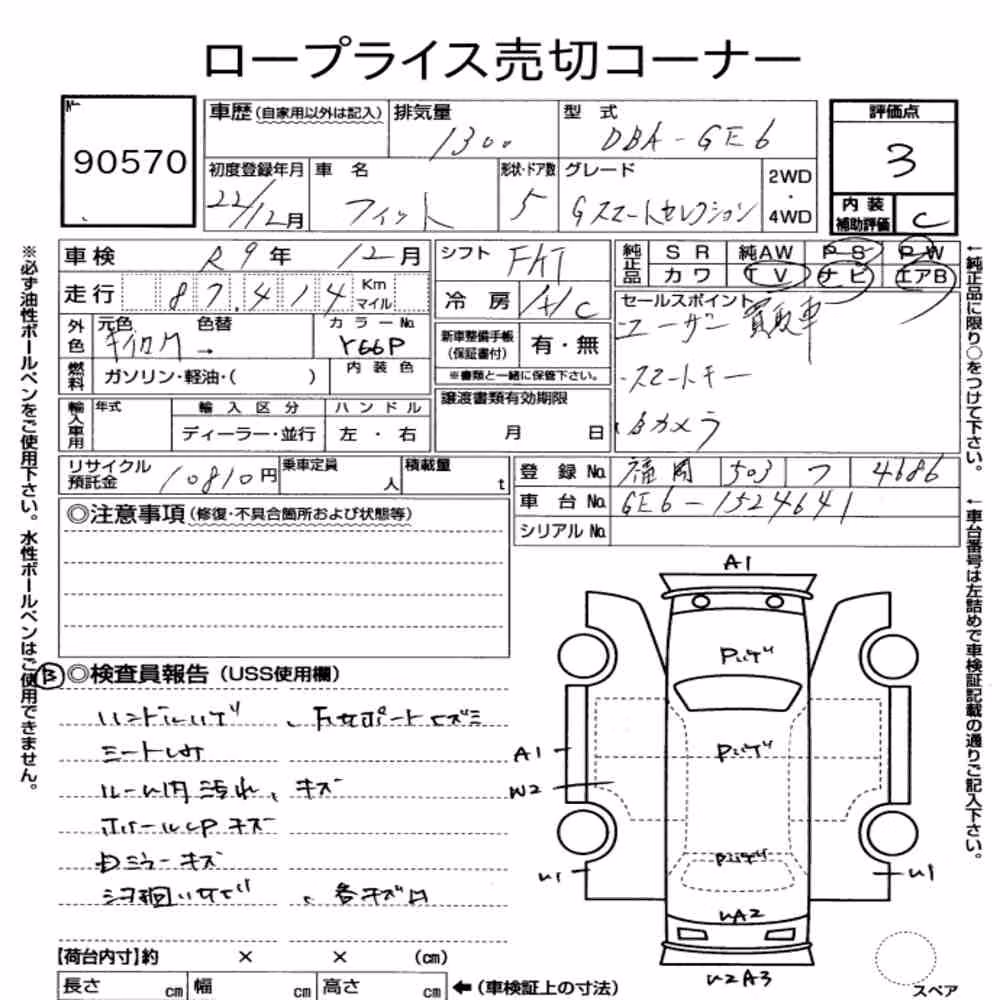 ロープライス売切コーナー
No. 90570
車歴 (自家用以外は記入) 排気量 1300 型式 DBA-GE6
評価点 3
初度登録年月 22/12月 車名 フィット 形状・ドア数 5 グレード Gスマートセレクション 2WD・4WD
内装補助評価 C
車検 R9年 12月 シフト FAT
純正品 SR 純AW PS PW
カワ TV ナビ エアB
走行 87,414 Km マイル 冷房 A/C
セールスポイント
・ユーザー買取車
・スマートキー
・Bカメラ
外色 元色 色替 → カラーNo. Y66P
新車整備手帳 (保証書付) 有・無
※書類と一緒に保管下さい。
燃料 ガソリン・軽油・( ) 内装色
輸入車用 年式 輸入区分 ハンドル
ディーラー・並行 左・右
譲渡書類有効期限
月 日
リサイクル預託金 10810円 乗車定員 人 積載量 t
登録No. 福岡 503 フ 4686
車台No. GE6-1524641
シリアルNo.
◎注意事項 (修復・不具合箇所および状態等)
B ◎検査員報告 (USS使用欄)
ハンドルハゲ
シートしみ
ルーム内汚れ、キズ
ホイールCPキズ
ミラーキズ
【荷台内寸】約 × × (cm)
長さ cm 幅 cm 高さ cm ←(車検証上の寸法)
A1
Pハゲ
Pハゲ
A1
W2
Pハゲ
U1
U1
UA2
U2A3
スペア
※必ず油性ボールペンをご使用下さい。水性ボールペンはご使用できません。
←純正品に限り○をつけて下さい。
←車台番号は左詰めで車検証記載の通りご記入下さい。